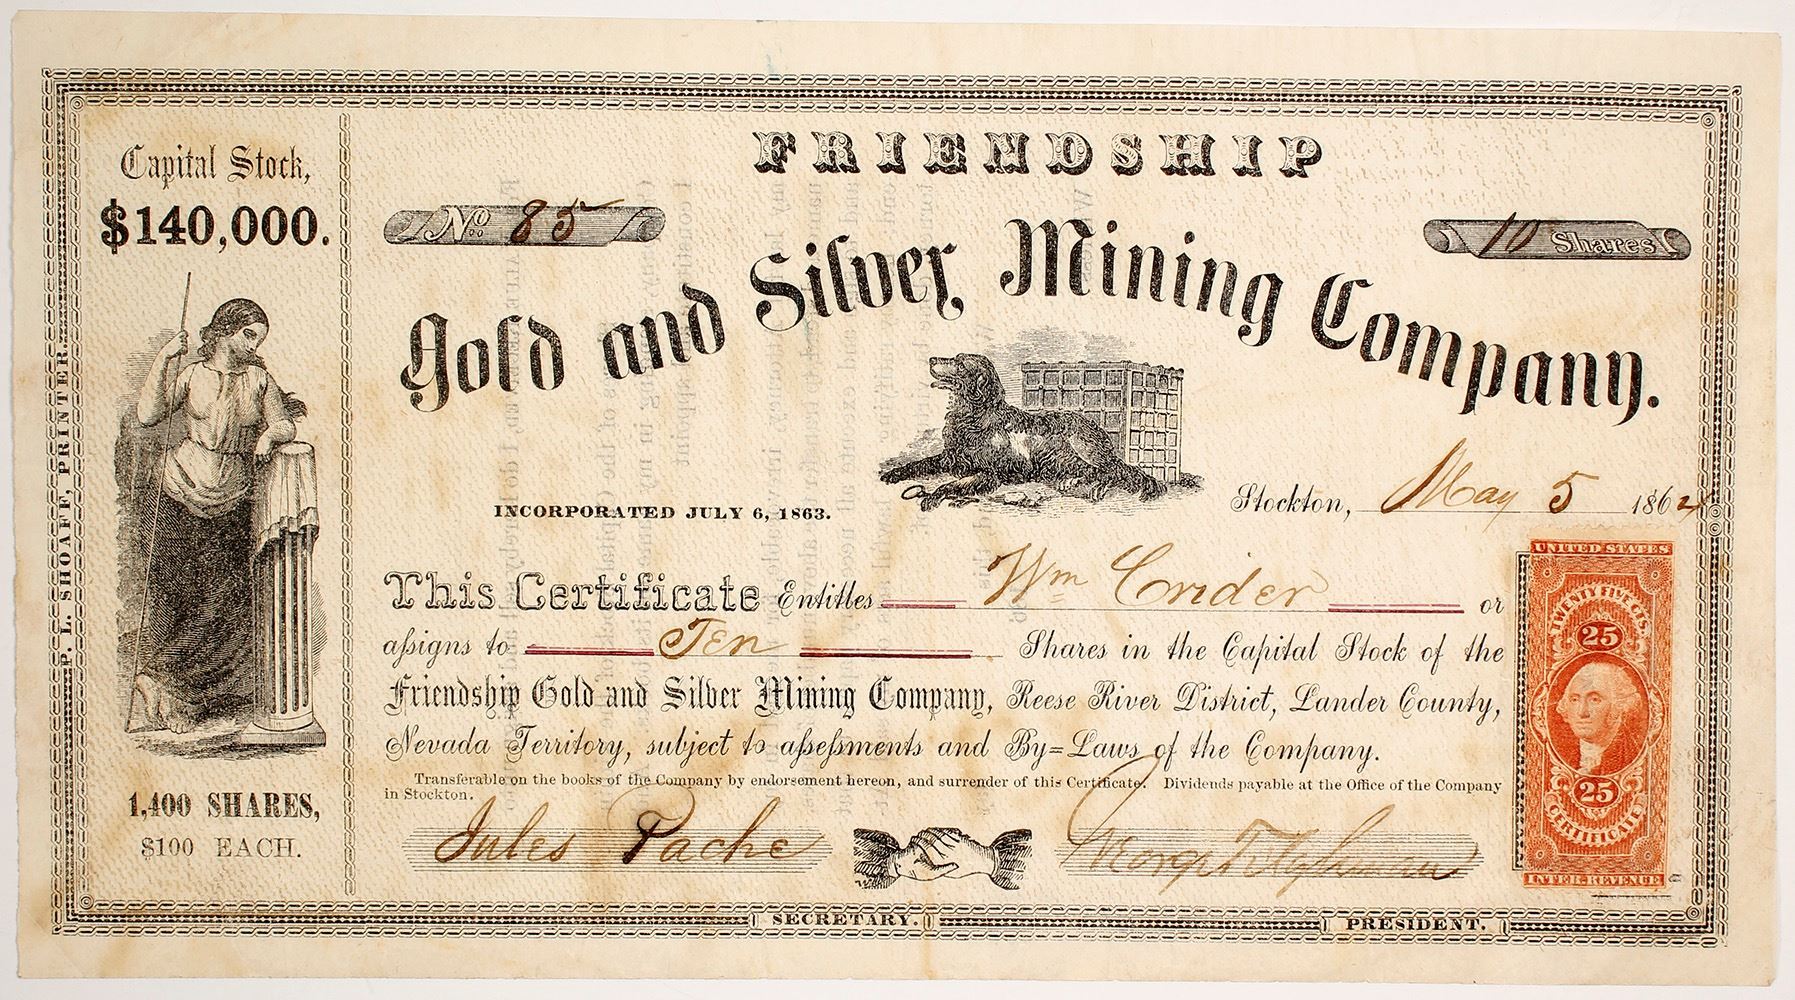 P. L. SHOAFF, PRINTER.
Capital Stock,
$140,000.
1,400 SHARES,
$100 EACH.
FRIENDSHIP
No. 85
10 Shares
Gold and Silver Mining Company.
INCORPORATED JULY 6, 1863.
Stockton, May 5 1864
This Certificate Entitles Wm Crider or
assigns to Ten Shares in the Capital Stock of the
Friendship Gold and Silver Mining Company, Reese River District, Lander County,
Nevada Territory, subject to assessments and By=Laws of the Company.
Transferable on the books of the Company by endorsement hereon, and surrender of this Certificate. Dividends payable at the Office of the Company
in Stockton.
Jules Pache
George
SECRETARY.
PRESIDENT.
UNITED STATES
TWENTY FIVE CTS.
25
25
CERTIFICATE
INTER. REVENUE